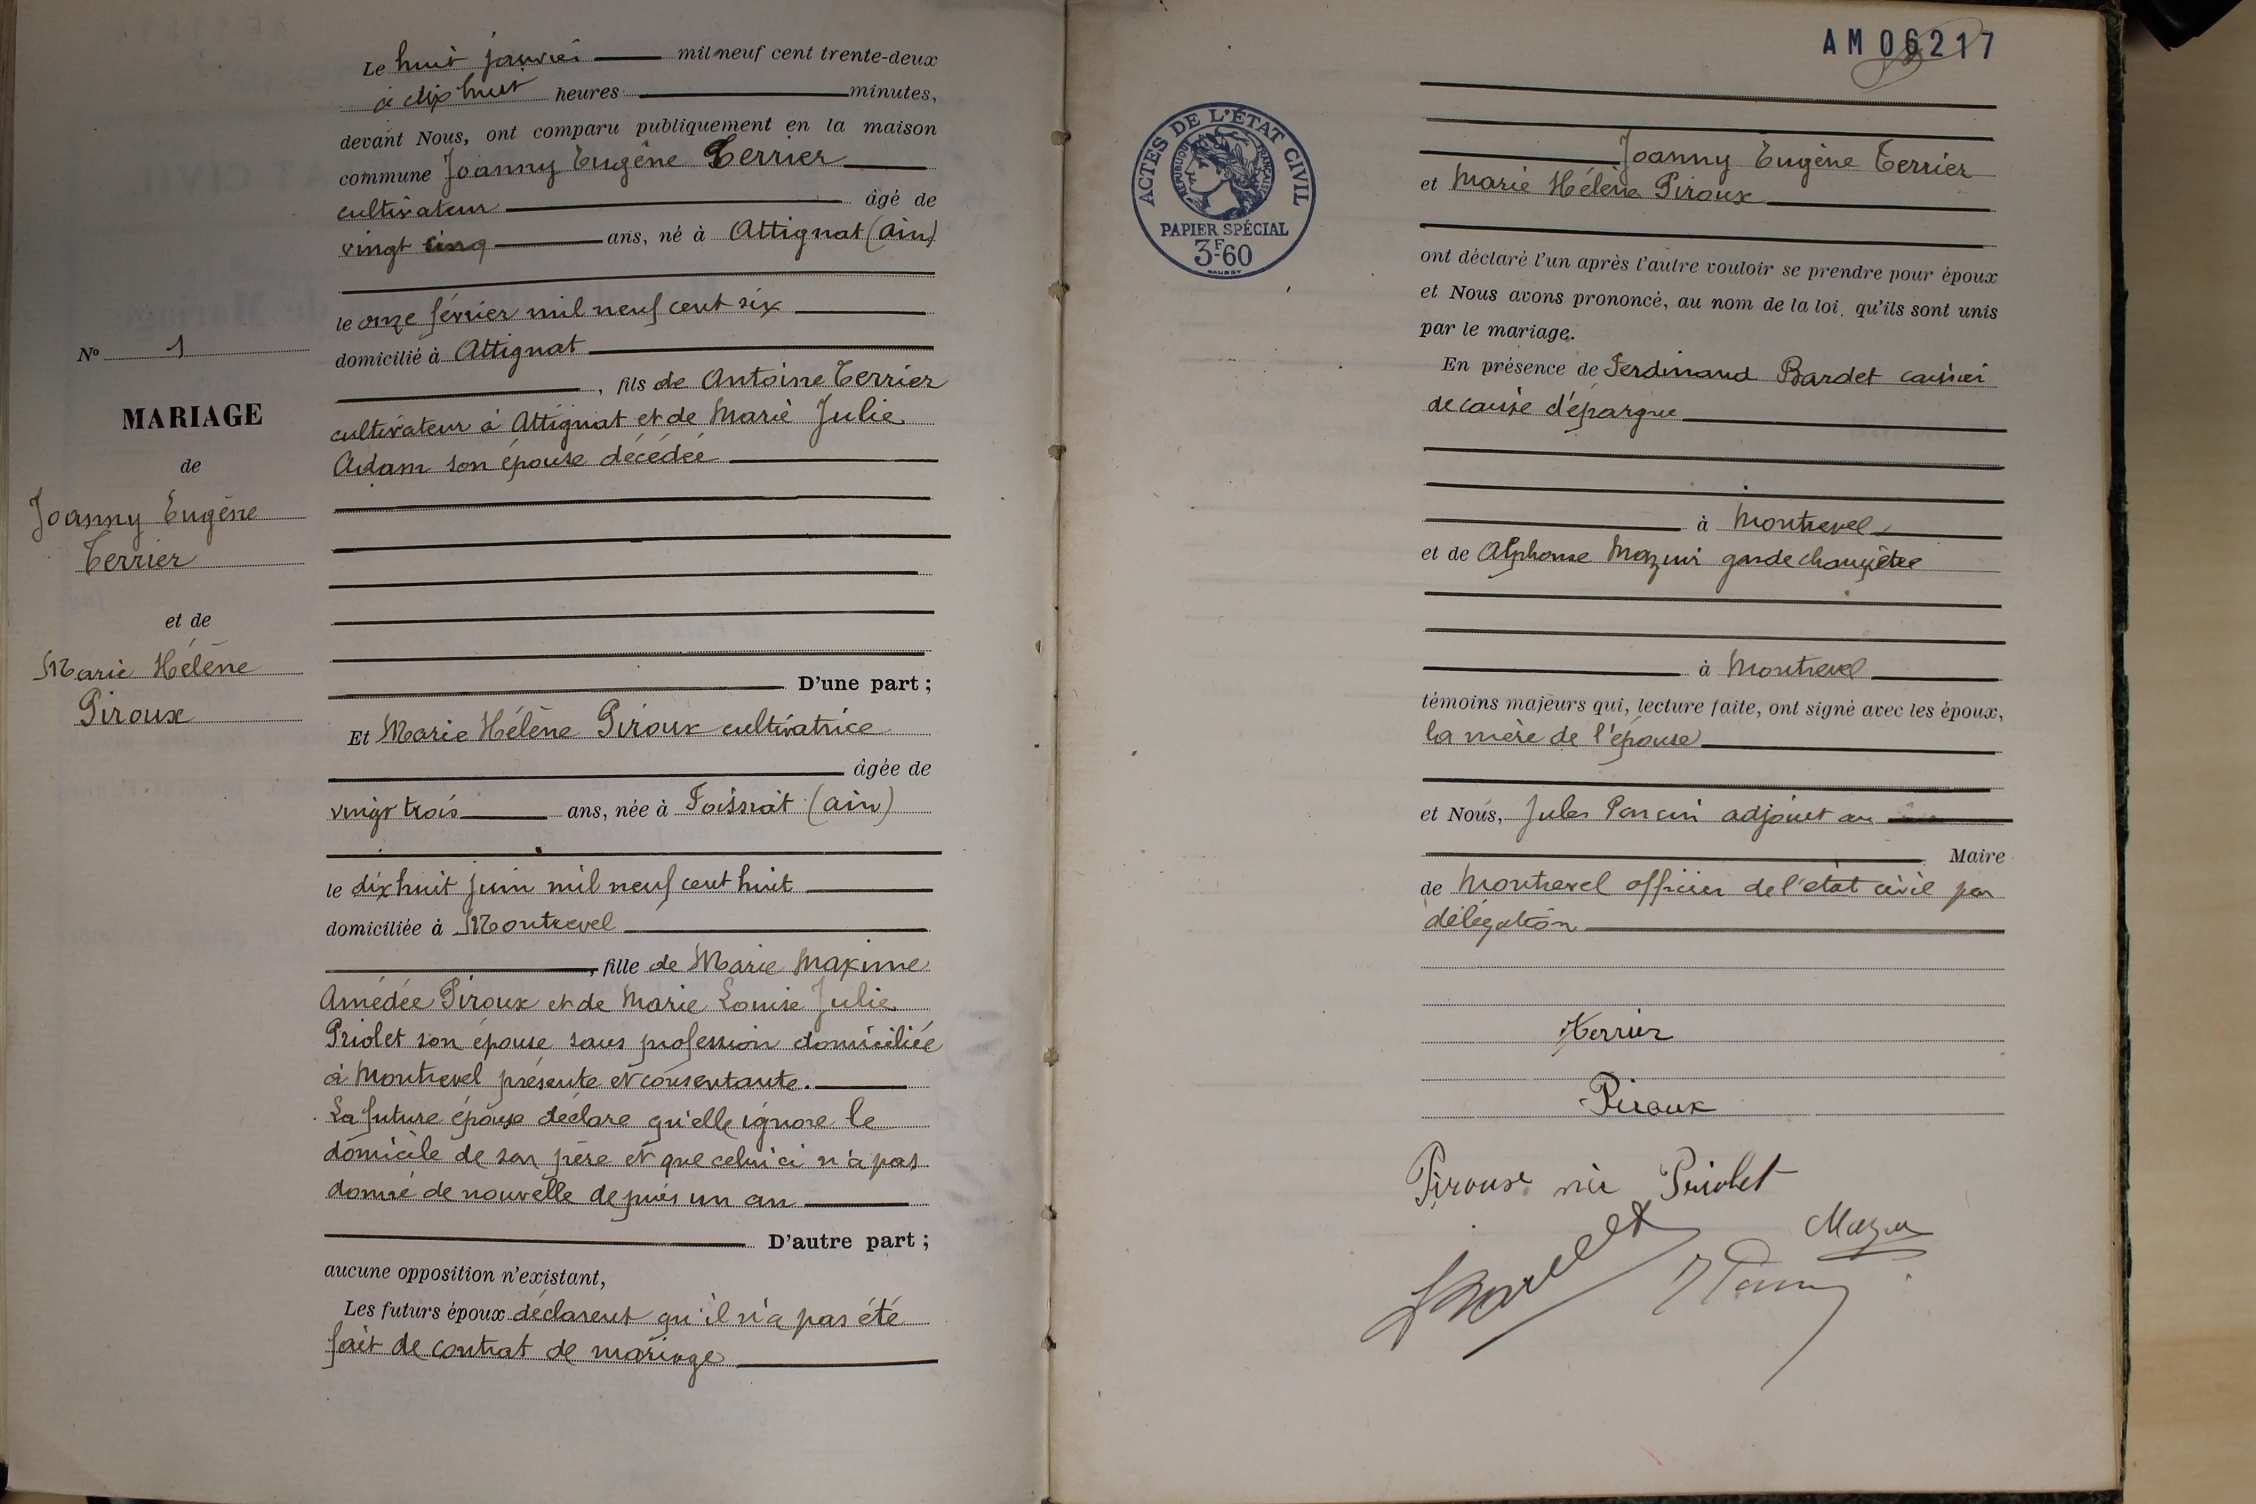 Le huit janvier mil neuf cent trente-deux
à dix huit heures minutes,
devant Nous, ont comparu publiquement en la maison
commune Joanny Eugène Terrier
cultivateur âgé de
vingt cinq ans, né à Attignat (Ain)
le onze février mil neuf cent six
domicilié à Attignat
, fils de Antoine Terrier
cultivateur à Attignat et de Marie Julie
Adam son épouse décédée
D'une part ;
Et Marie Hélène Piroux cultivatrice
âgée de
vingt trois ans, née à Foissiat (Ain)
le dix huit juin mil neuf cent huit
domiciliée à Montrevel
, fille de Marie Maxime
Amédée Piroux et de Marie Louise Julie
Priolet son épouse sans profession domiciliée
à Montrevel présente et consentante.
La future épouse déclare qu'elle ignore le
domicile de son père et que celui ci n'a pas
donné de nouvelle depuis un an
D'autre part ;
aucune opposition n'existant,
Les futurs époux déclarent qu'il n'a pas été
fait de contrat de mariage
No 1
MARIAGE
de
Joanny Eugène
Terrier
et de
Marie Hélène
Piroux
AM06217
ACTES DE L'ÉTAT CIVIL
RÉPUBLIQUE FRANÇAISE
PAPIER SPÉCIAL
3F.60
Joanny Eugène Terrier
et Marie Hélène Piroux
ont déclaré l'un après l'autre vouloir se prendre pour époux
et Nous avons prononcé, au nom de la loi, qu'ils sont unis
par le mariage.
En présence de Ferdinand Bardet caissier
de caisse d'épargne
à Montrevel
et de Alphonse Mazuir garde champêtre
à Montrevel
témoins majeurs qui, lecture faite, ont signé avec les époux,
la mère de l'épouse
et Nous, Jules adjoint au
Maire
de Montrevel officier de l'état civil par
délégation
Terrier
Piroux
Piroux née Priolet